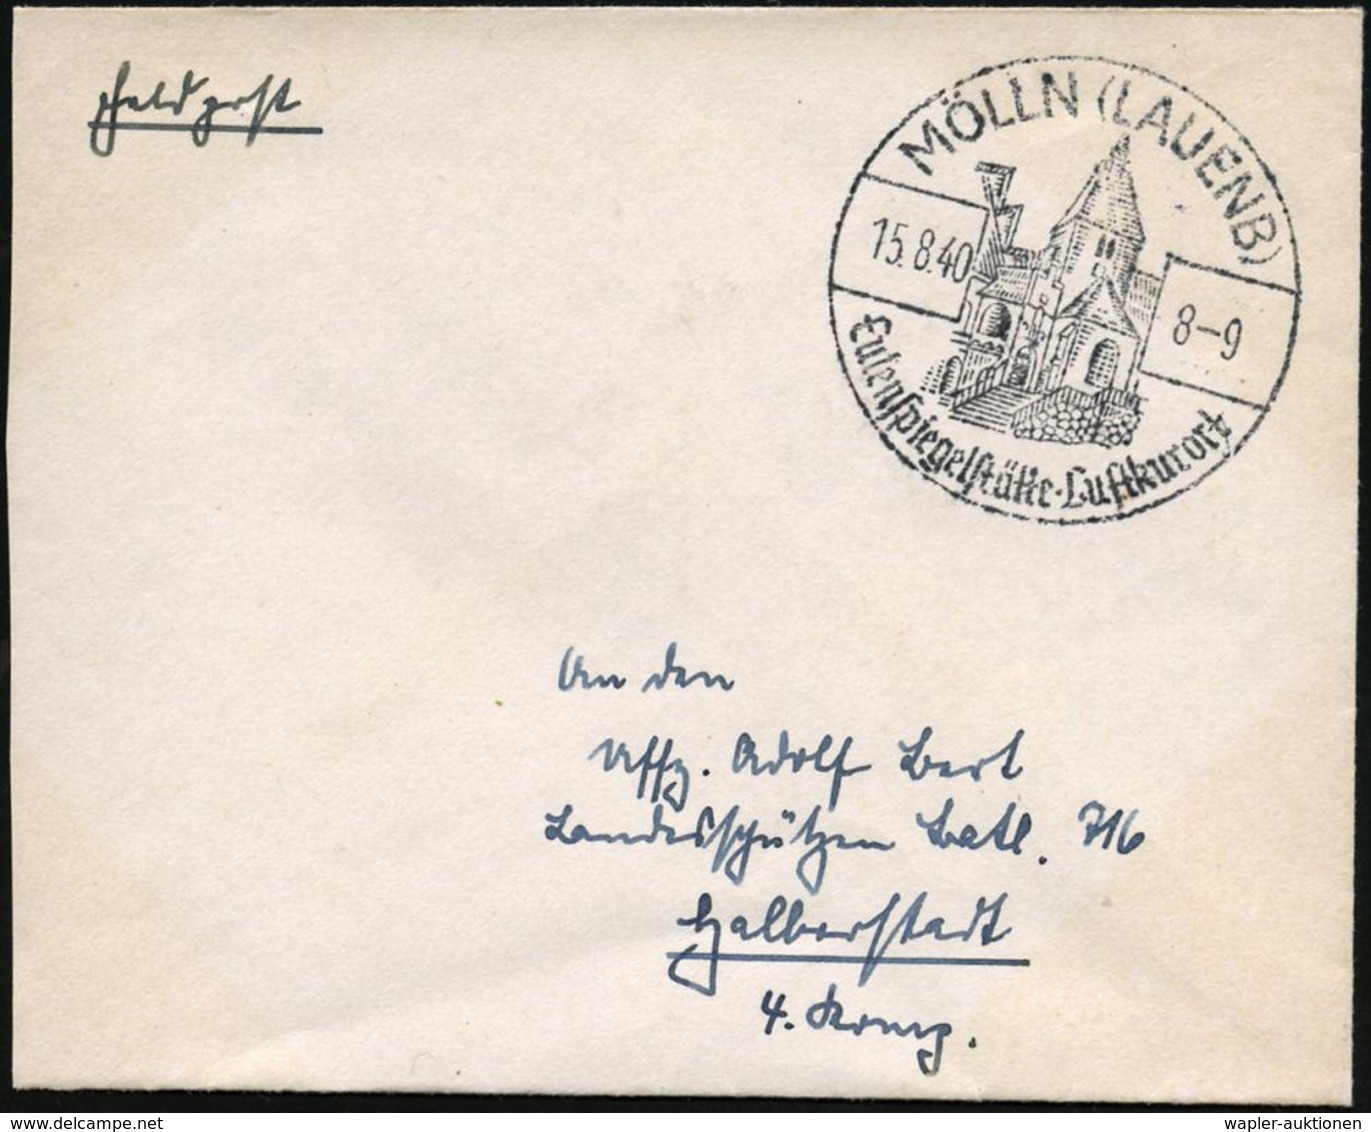 Feldpost
MÖLLN (LAUENB)
15.8.40
8-9
Eulenspiegelstätte · Luftkurort
An den
Uffz. Adolf Bert
Landesschützen Batl. 716
Halberstadt
4. Komp.
wapler-auktionen